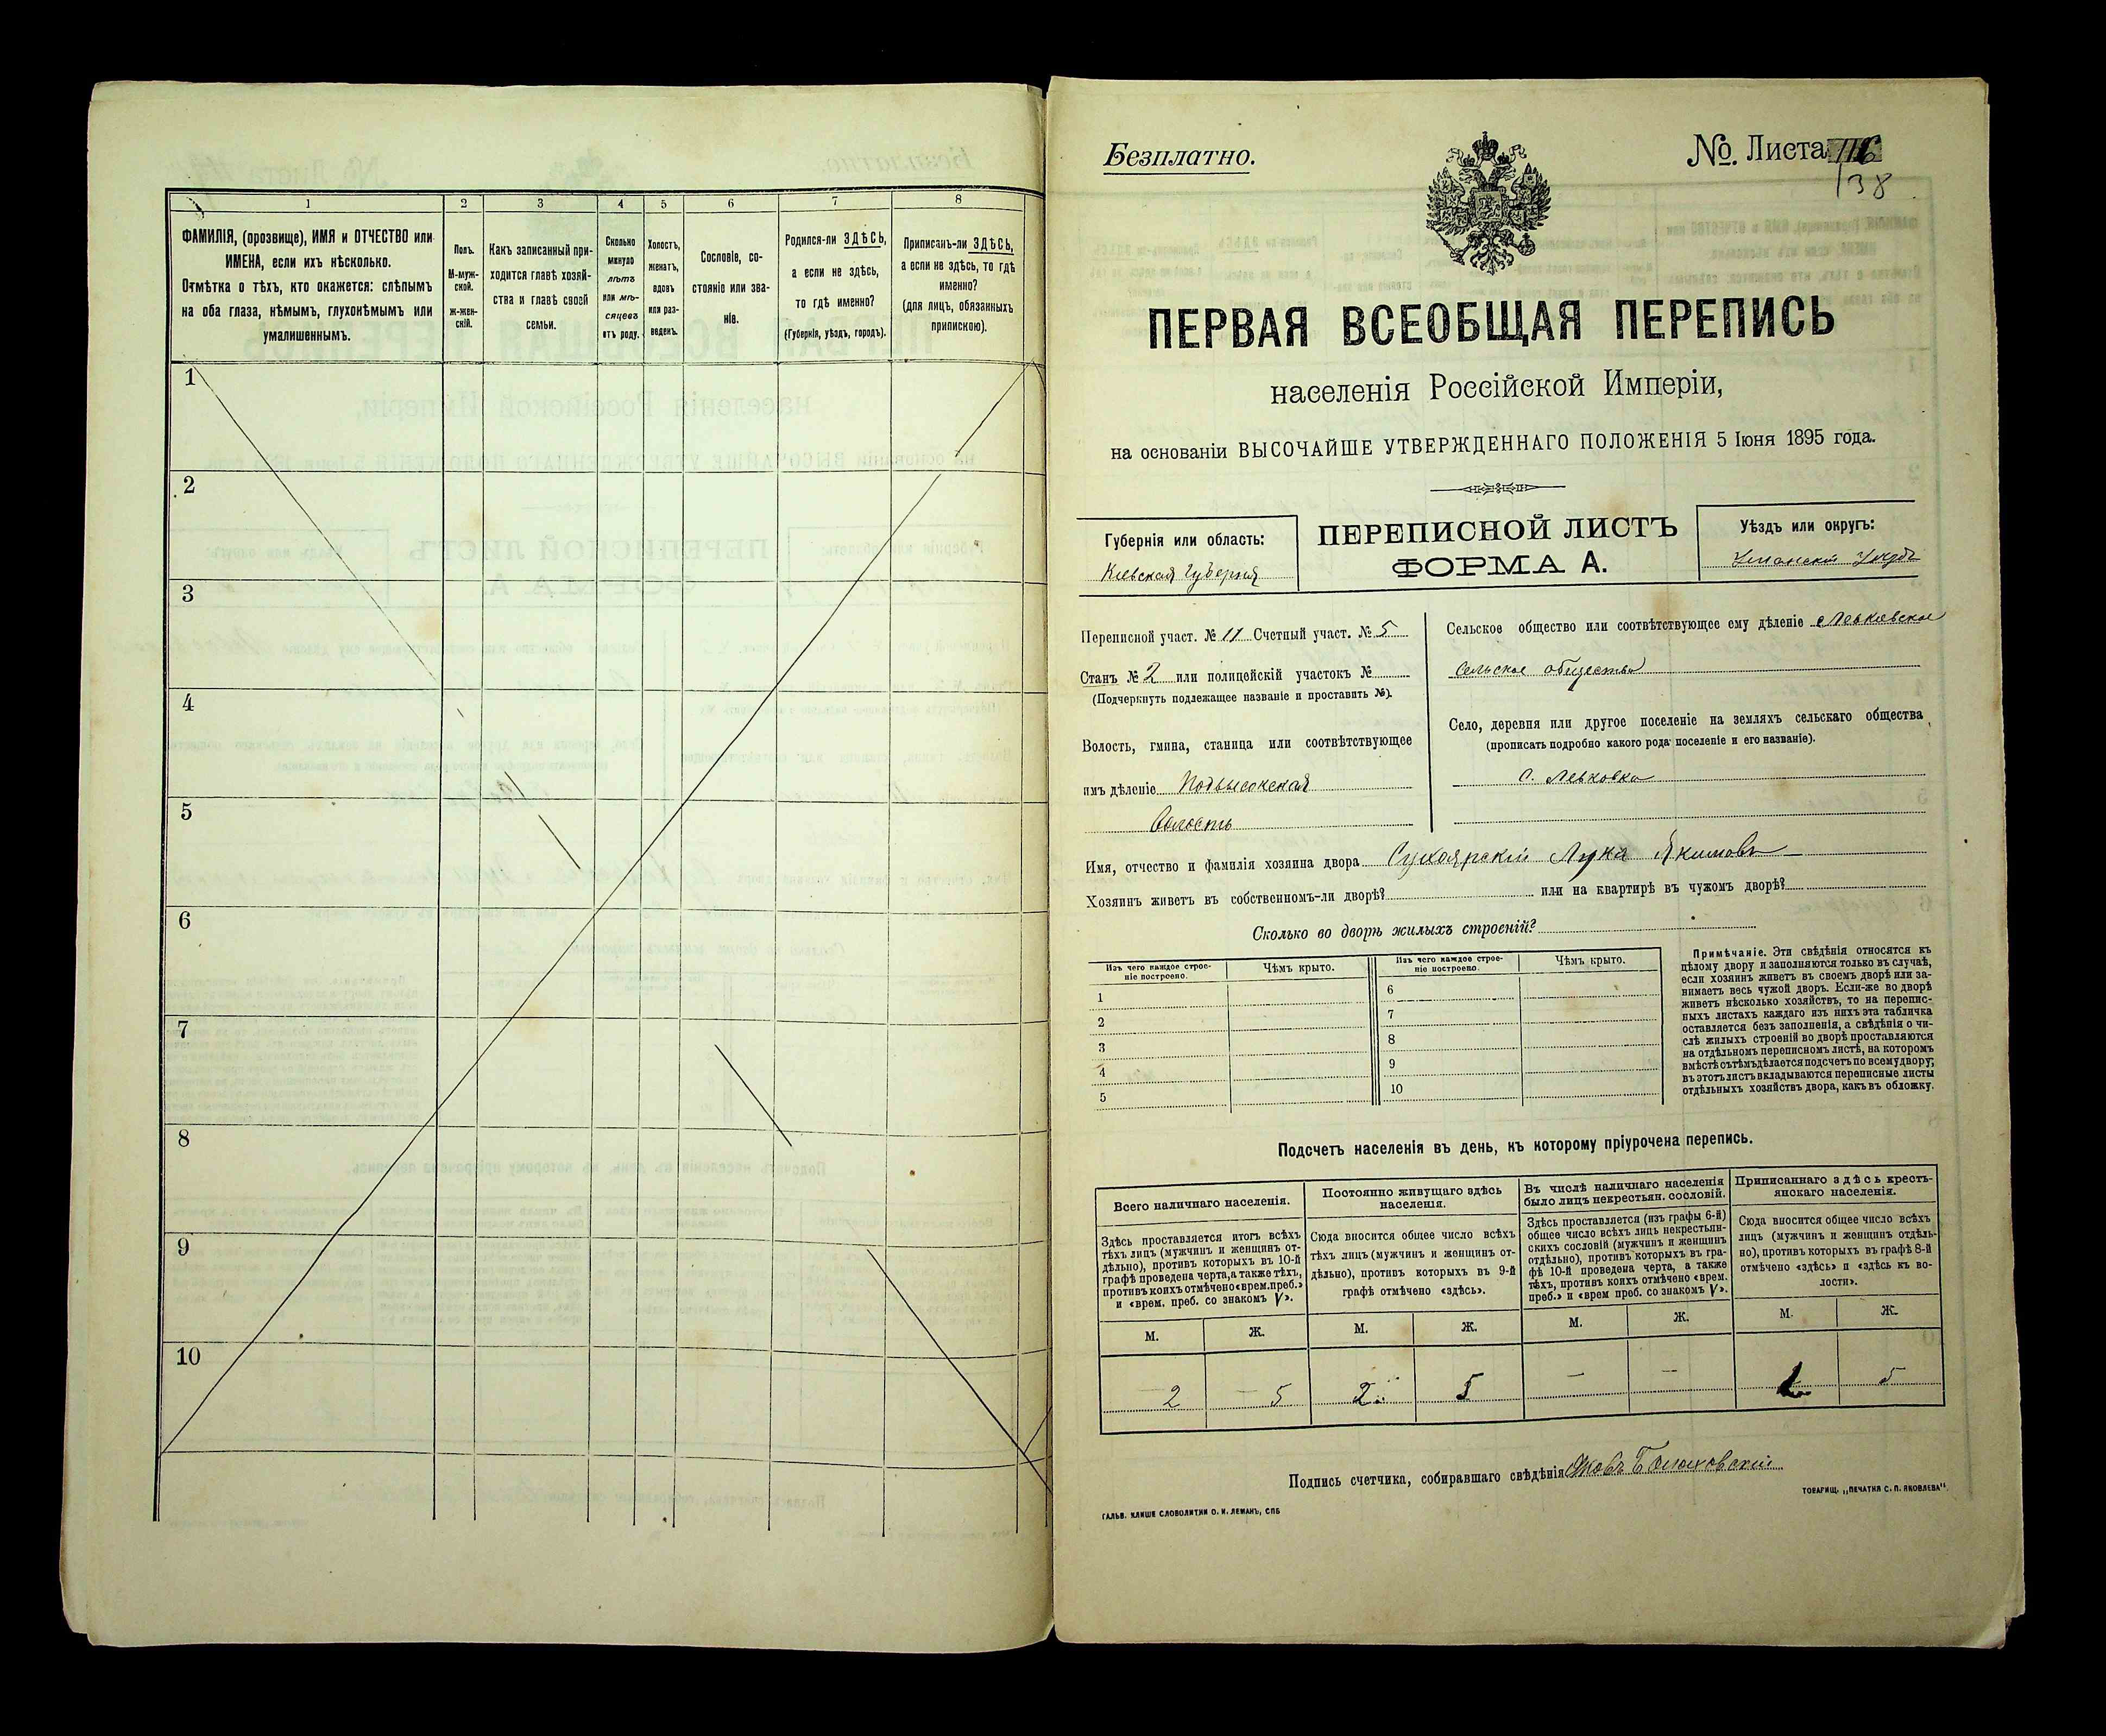 1
2
3
4
5
6
7
8
ФАМИЛІЯ, (прозвище), ИМЯ и ОТЧЕСТВО или
ИМЕНА, если ихъ нѣсколько.
Отмѣтка о тѣхъ, кто окажется: слѣпымъ
на оба глаза, нѣмымъ, глухонѣмымъ или
умалишеннымъ.
Полъ.
М-муж-
ской.
Ж-жен-
скій.
Какъ записанный при-
ходится главѣ хозяй-
ства и главѣ своей
семьи.
Сколько
минуло
лѣтъ
или мѣ-
сяцевъ
отъ роду.
Холостъ,
женатъ,
вдовъ
или раз-
веденъ.
Сословіе, со-
стояніе или зва-
ніе.
Родился-ли ЗДѢСЬ,
а если не здѣсь,
то гдѣ именно?
(Губернія, уѣздъ, городъ).
Приписанъ-ли ЗДѢСЬ,
а если не здѣсь, то гдѣ
именно?
(для лицъ, обязанныхъ
припискою).
1
2
3
4
5
6
7
8
9
10
Безплатно.
№. Листа 116
138
ПЕРВАЯ ВСЕОБЩАЯ ПЕРЕПИСЬ
населенія Россійской Имперіи,
на основаніи ВЫСОЧАЙШЕ УТВЕРЖДЕННАГО ПОЛОЖЕНІЯ 5 Іюня 1895 года.
Губернія или область:
Кіевская Губернія
ПЕРЕПИСНОЙ ЛИСТЪ
ФОРМА А.
Уѣздъ или округъ:
Уманскій Уѣздъ
Переписной участ. № 11 Счетный участ. № 5
Станъ № 2 или полицейскій участокъ №
(Подчеркнуть подлежащее названіе и проставить №).
Волость, гмина, станица или соотвѣтствующее
имъ дѣленіе Подвысокская
Волость
Сельское общество или соотвѣтствующее ему дѣленіе Левковское
Сельское общество
Село, деревня или другое поселеніе на земляхъ сельскаго общества
(прописать подробно какого рода поселеніе и его названіе).
с. Левковка
Имя, отчество и фамилія хозяина двора Сухоярскій Лука Якимовъ
Хозяинъ живетъ въ собственномъ-ли дворѣ? или на квартирѣ въ чужомъ дворѣ?
Сколько во дворѣ жилыхъ строеній?
Изъ чего каждое строе-
ніе построено.
Чѣмъ крыто.
Изъ чего каждое строе-
ніе построено.
Чѣмъ крыто.
1
2
3
4
5
6
7
8
9
10
Примѣчаніе. Эти свѣдѣнія относятся къ
цѣлому двору и заполняются только въ случаѣ,
если хозяинъ живетъ въ своемъ дворѣ или за-
нимаетъ весь чужой дворъ. Если-же во дворѣ
живетъ нѣсколько хозяйствъ, то на перепис-
ныхъ листахъ каждаго изъ нихъ эта табличка
оставляется безъ заполненія, а свѣдѣнія о чи-
слѣ жилыхъ строеній во дворѣ проставляются
на отдѣльномъ переписномъ листѣ, на которомъ
вмѣстѣ съ тѣмъ дѣлается подсчетъ по всему двору;
въ этотъ листъ вкладываются переписные листы
отдѣльныхъ хозяйствъ двора, какъ въ обложку.
Подсчетъ населенія въ день, къ которому пріурочена перепись.
Всего наличнаго населенія.
Постоянно живущаго здѣсь
населенія.
Въ числѣ наличнаго населенія
было лицъ некрестьян. сословій.
Приписаннаго здѣсь кресть-
янскаго населенія.
Здѣсь проставляется итогъ всѣхъ
тѣхъ лицъ (мужчинъ и женщинъ от-
дѣльно), противъ которыхъ въ 10-й
графѣ проведена черта, а также тѣхъ,
противъ коихъ отмѣчено «врем. преб.»
и «врем. преб. со знакомъ V».
Сюда вносится общее число всѣхъ
тѣхъ лицъ (мужчинъ и женщинъ от-
дѣльно), противъ которыхъ въ 9-й
графѣ отмѣчено «здѣсь».
Здѣсь проставляется (изъ графы 6-й)
общее число всѣхъ лицъ некрестьян-
скихъ сословій (мужчинъ и женщинъ
отдѣльно), противъ которыхъ въ гра-
фѣ 10-й проведена черта, а также
тѣхъ, противъ коихъ отмѣчено «врем.
преб.» и «врем преб. со знакомъ V».
Сюда вносится общее число всѣхъ
лицъ (мужчинъ и женщинъ отдѣль-
но), противъ которыхъ въ графѣ 8-й
отмѣчено «здѣсь» и «здѣсь къ во-
лости».
М. Ж. М. Ж. М. Ж. М. Ж.
2 5 2 5 — — 5
Подпись счетчика, собиравшаго свѣдѣнія Яковъ
ГАЛЬВ. КЛИШЕ СЛОВОЛИТНИ О. И. ЛЕМАНЪ, СПБ
ТОВАРИЩ. „ПЕЧАТНЯ С. П. ЯКОВЛЕВА".